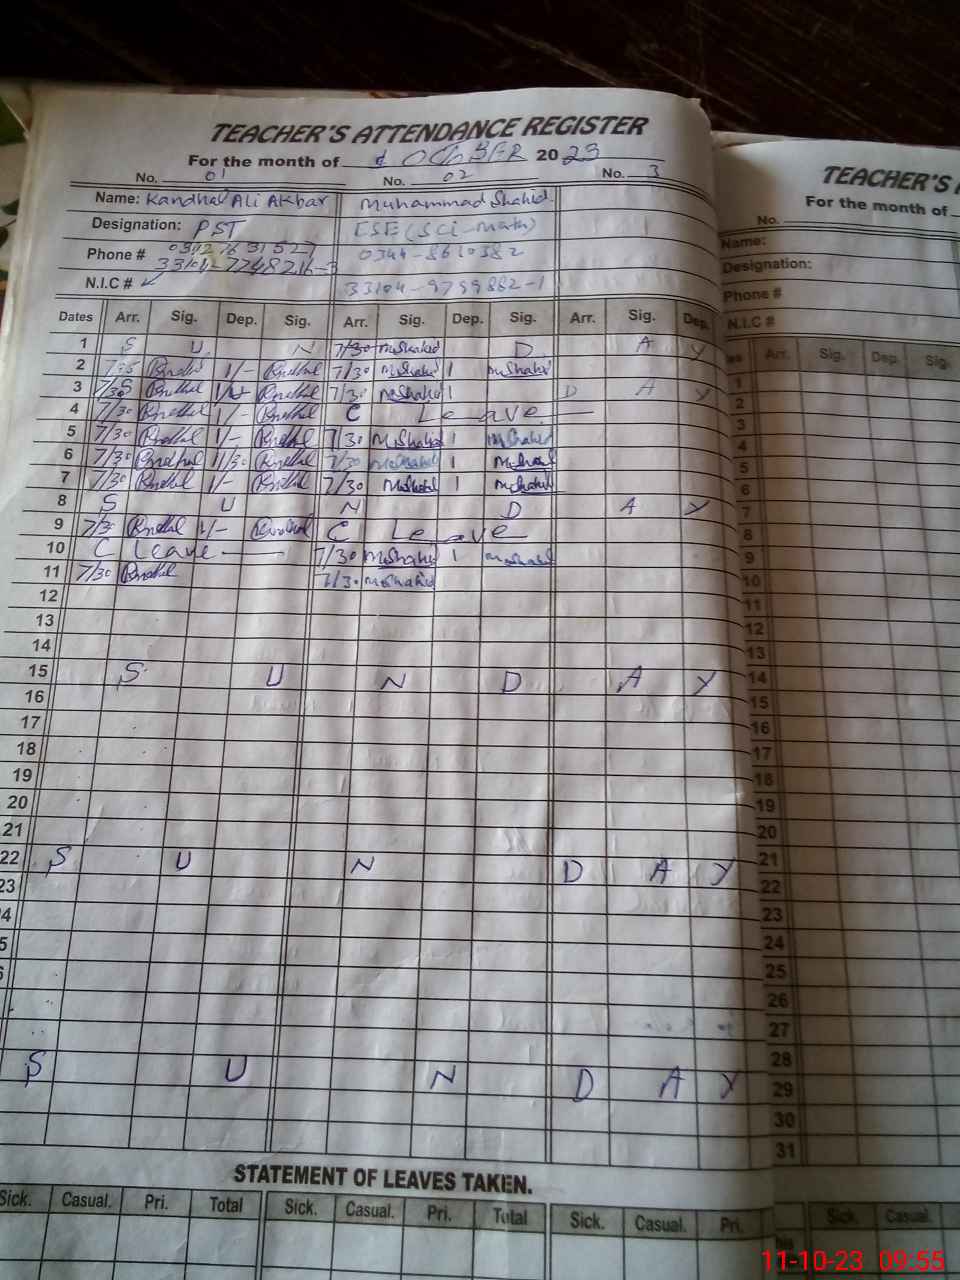 TEACHER'S ATTENDANCE REGISTER
For the month of OCtoBER 2023
No. 01 No. 02 No. 3
Name: Kandhal Ali Akbar Muhammad Shahid
Designation: PST ESE (Sci-math)
Phone # 0344-8610382
N.I.C # 33104-9799882-1
Dates Arr. Sig. Dep. Sig. Arr. Sig. Dep. Sig. Arr. Sig. Dep.
1 S U N 7/30 MShahid D A Y
2 1/- 7/30 MShahid 1 MShahid
3 7/30 7/30 MShahid 1 D A Y
4 7/30 1/- C Leave
5 7/30 1/- 7/30 MShahid 1 MShahid
6 7/30 11/30 7/30 MShahid 1 MShahid
7 7/30 1/- 7/30 MShahid 1 MShahid
8 S U N D A Y
9 7/30 1/- C Leave
10 C Leave 7/30 MShahid 1 MShahid
11 7/30 7/30 MShahid
12
13
14
15 S U N D A Y
16
17
18
19
20
21
22 S U N D A Y
23
4
5
S U N D A Y
STATEMENT OF LEAVES TAKEN.
Sick. Casual. Pri. Total Sick. Casual. Pri. Total Sick. Casual. Pri.
TEACHER'S
For the month of
No.
Name:
Designation:
Phone #
N.I.C #
Arr. Sig. Dep. Sig.
1
2
3
4
5
6
7
8
9
10
11
12
13
14
15
16
17
18
19
20
21
22
23
24
25
26
27
28
29
30
31
Sick. Casual.
11-10-23 09:55